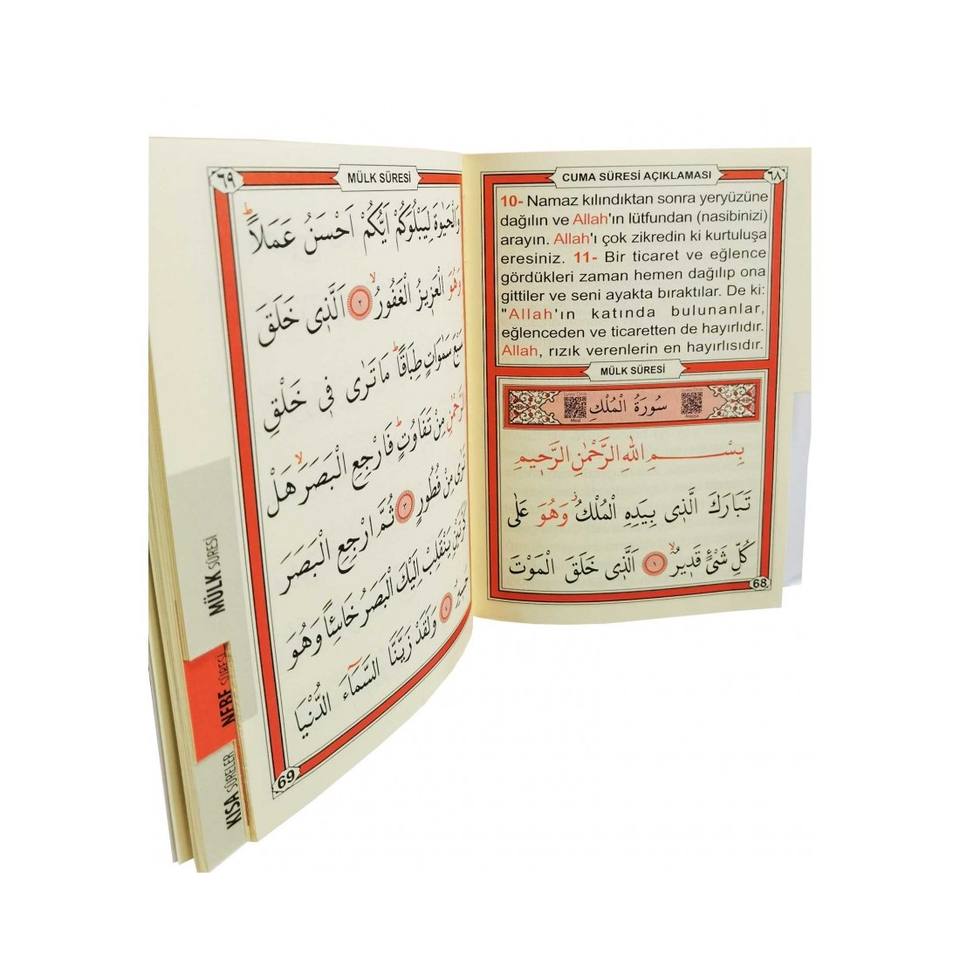 CUMA SÛRESİ AÇIKLAMASI
٦٨
10- Namaz kılındıktan sonra yeryüzüne
dağılın ve Allah'ın lütfundan (nasibinizi)
arayın. Allah'ı çok zikredin ki kurtuluşa
eresiniz. 11- Bir ticaret ve eğlence
gördükleri zaman hemen dağılıp ona
gittiler ve seni ayakta bıraktılar. De ki:
"Allah'ın katında bulunanlar,
eğlenceden ve ticaretten de hayırlıdır.
Allah, rızık verenlerin en hayırlısıdır.
MÜLK SÛRESİ
سُورَةُ الْمُلْكِ
بِسْــــــمِ اللّٰهِ الرَّحْمٰنِ الرَّح۪يمِ
تَبَارَكَ الَّذ۪ي بِيَدِهِ الْمُلْكُۘ وَهُوَ عَلٰى
كُلِّ شَيْءٍ قَد۪يرٌۙ ١ اَلَّذ۪ي خَلَقَ الْمَوْتَ
68
٦٩
MÜLK SÛRESİ
وَالْحَيٰوةَ لِيَبْلُوَكُمْ اَيُّكُمْ اَحْسَنُ عَمَلًاۜ
وَهُوَ الْعَز۪يزُ الْغَفُورُۙ ٢ اَلَّذ۪ي خَلَقَ
سَبْعَ سَمٰوَاتٍ طِبَاقًاۜ مَا تَرٰى ف۪ي خَلْقِ
الرَّحْمٰنِ مِنْ تَفَاوُتٍۜ فَارْجِعِ الْبَصَرَۙ هَلْ
تَرٰى مِنْ فُطُورٍ ٣ ثُمَّ ارْجِعِ الْبَصَرَ
كَرَّتَيْنِ يَنْقَلِبْ اِلَيْكَ الْبَصَرُ خَاسِئًا وَهُوَ
حَس۪يرٌ ٤ وَلَقَدْ زَيَّنَّا السَّمَٓاءَ الدُّنْيَا
69
MÜLK SÛRESİ
SÛRESİ
KISA SÛRELER